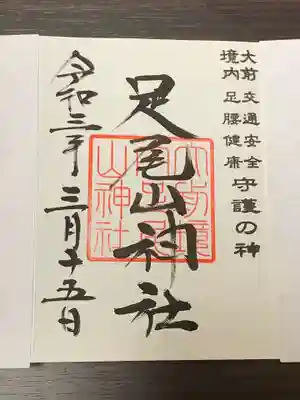 大前 交通安全
境内 足腰健康
守護の神
足尾山神社
大前境
内足尾
山神社
令和三年 三月十五日